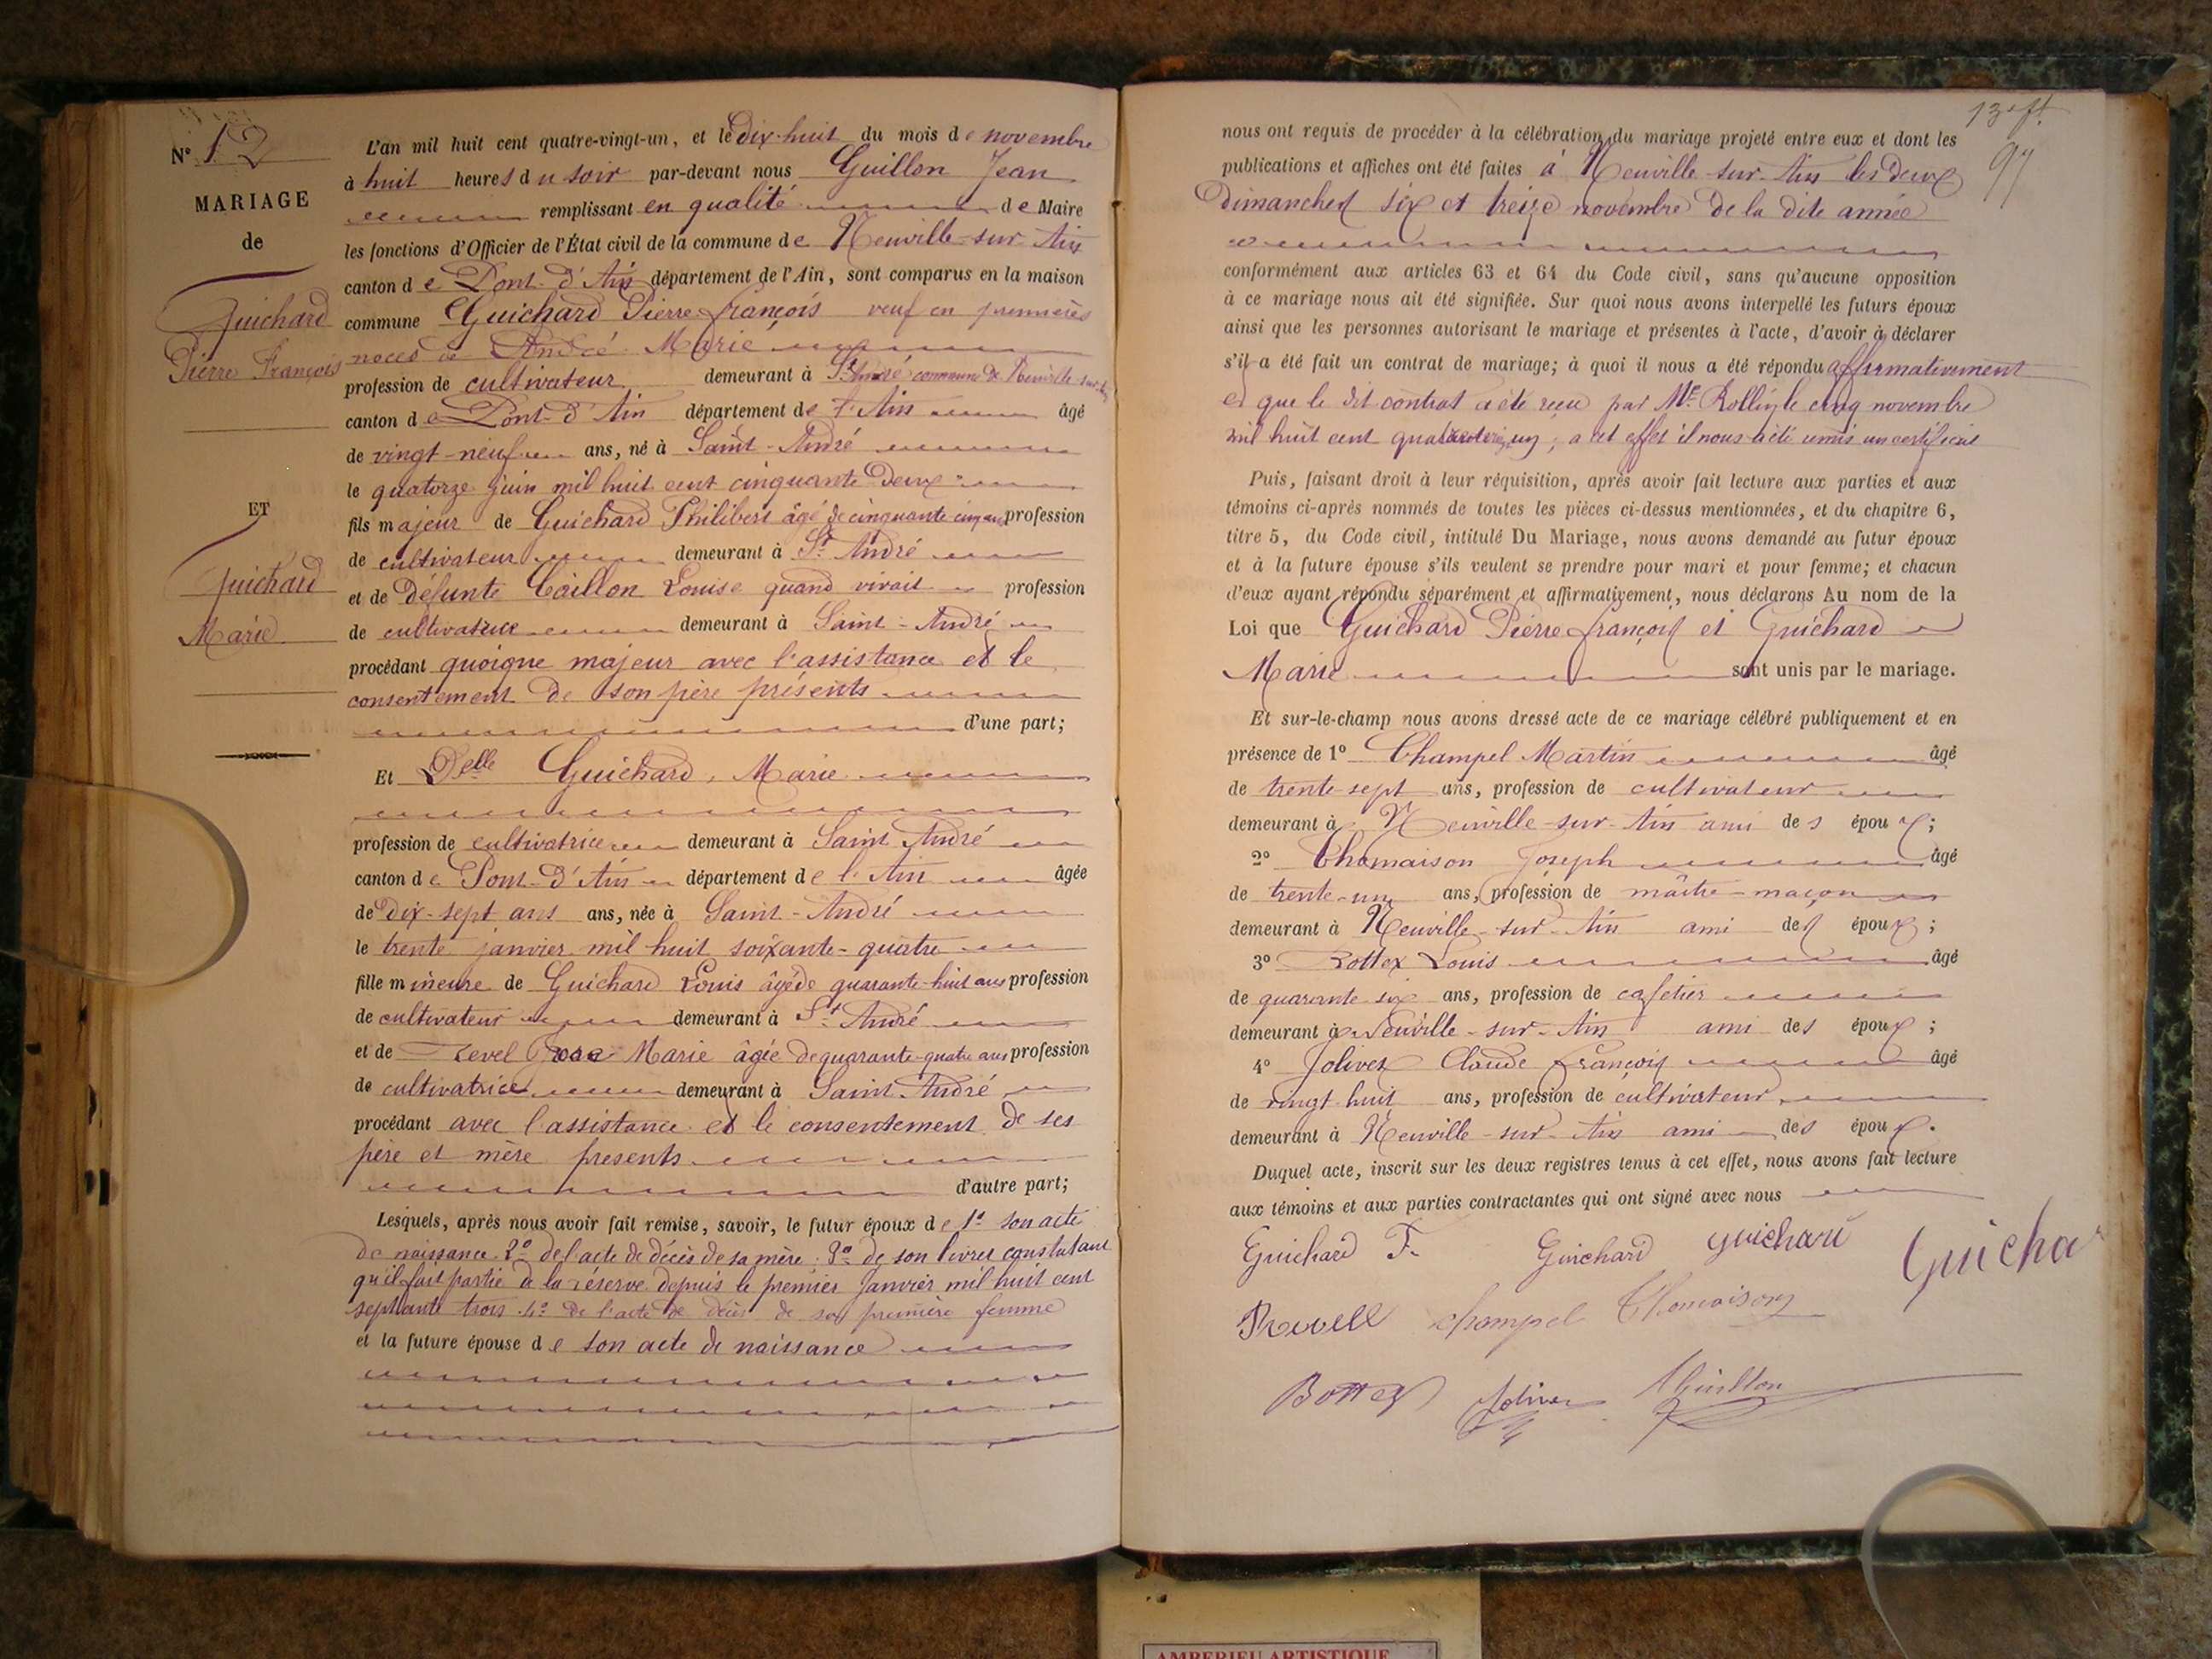 N° 12
MARIAGE
de
Guichard
Pierre François
ET
Guichard
Marie
L'an mil huit cent quatre-vingt-un, et le dix-huit du mois de novembre
à huit heures du soir par-devant nous Guillon Jean
remplissant en qualité de Maire
les fonctions d'Officier de l'État civil de la commune de Neuville-sur-Ain
canton de Pont-d'Ain département de l'Ain, sont comparus en la maison
commune Guichard Pierre François veuf en premières
noces de André Marie
profession de cultivateur demeurant à St André commune de Neuville-sur-Ain
canton de Pont-d'Ain département de l'Ain âgé
de vingt-neuf ans, né à Saint-André
le quatorze juin mil huit cent cinquante deux
fils majeur de Guichard Philibert âgé de cinquante cinq ans profession
de cultivateur demeurant à St André
et de défunte Caillon Louise quand vivait profession
de cultivatrice demeurant à Saint-André
procédant quoique majeur avec l'assistance et le
consentement de son père présents
d'une part;
Et Delle Guichard, Marie
profession de cultivatrice demeurant à Saint André
canton de Pont-d'Ain département de l'Ain âgée
de dix-sept ans ans, née à Saint-André
le trente janvier mil huit soixante-quatre
fille mineure de Guichard Louis âgé de quarante-huit ans profession
de cultivateur demeurant à St André
et de Revel Marie âgée de quarante-quatre ans profession
de cultivatrice demeurant à Saint André
procédant avec l'assistance et le consentement de ses
père et mère presents
d'autre part;
Lesquels, après nous avoir fait remise, savoir, le futur époux de 1° son acte
de naissance 2° de l'acte de décès de sa mère 3° de son livret constatant
qu'il fait partie à la réserve depuis le premier janvier mil huit cent
septante trois 4° de l'acte de décès de sa première femme
et la future épouse de son acte de naissance
13e ft.
97
nous ont requis de procéder à la célébration du mariage projeté entre eux et dont les
publications et affiches ont été faites à Neuville-sur-Ain les deux
dimanches six et treize novembre de la dite année
conformément aux articles 63 et 64 du Code civil, sans qu'aucune opposition
à ce mariage nous ait été signifiée. Sur quoi nous avons interpellé les futurs époux
ainsi que les personnes autorisant le mariage et présentes à l'acte, d'avoir à déclarer
s'il a été fait un contrat de mariage; à quoi il nous a été répondu affirmativement
et que le dit contrat a été reçu par Me Rollin le cinq novembre
mil huit cent quatre vingt un; a cet effet il nous a été remis un certificat
Puis, faisant droit à leur réquisition, après avoir fait lecture aux parties et aux
témoins ci-après nommés de toutes les pièces ci-dessus mentionnées, et du chapitre 6,
titre 5, du Code civil, intitulé Du Mariage, nous avons demandé au futur époux
et à la future épouse s'ils veulent se prendre pour mari et pour femme; et chacun
d'eux ayant répondu séparément et affirmativement, nous déclarons Au nom de la
Loi que Guichard Pierre François et Guichard
Marie sont unis par le mariage.
Et sur-le-champ nous avons dressé acte de ce mariage célébré publiquement et en
présence de 1° Champel Martin âgé
de trente-sept ans, profession de cultivateur
demeurant à Neuville-sur-Ain ami des époux;
2° Thomaison Joseph âgé
de trente-un ans, profession de maître-maçon
demeurant à Neuville-sur-Ain ami des époux;
3° Bottex Louis âgé
de quarante six ans, profession de cafetier
demeurant à Neuville-sur-Ain ami des époux;
4° Jolivet Claude François âgé
de vingt huit ans, profession de cultivateur
demeurant à Neuville-sur-Ain ami des époux.
Duquel acte, inscrit sur les deux registres tenus à cet effet, nous avons fait lecture
aux témoins et aux parties contractantes qui ont signé avec nous
Guichard F. Guichard guichard Guichar
Revell champel Thomaison
Bottex Jolivet Guillon
AMBERIEU ARTISTIQUE